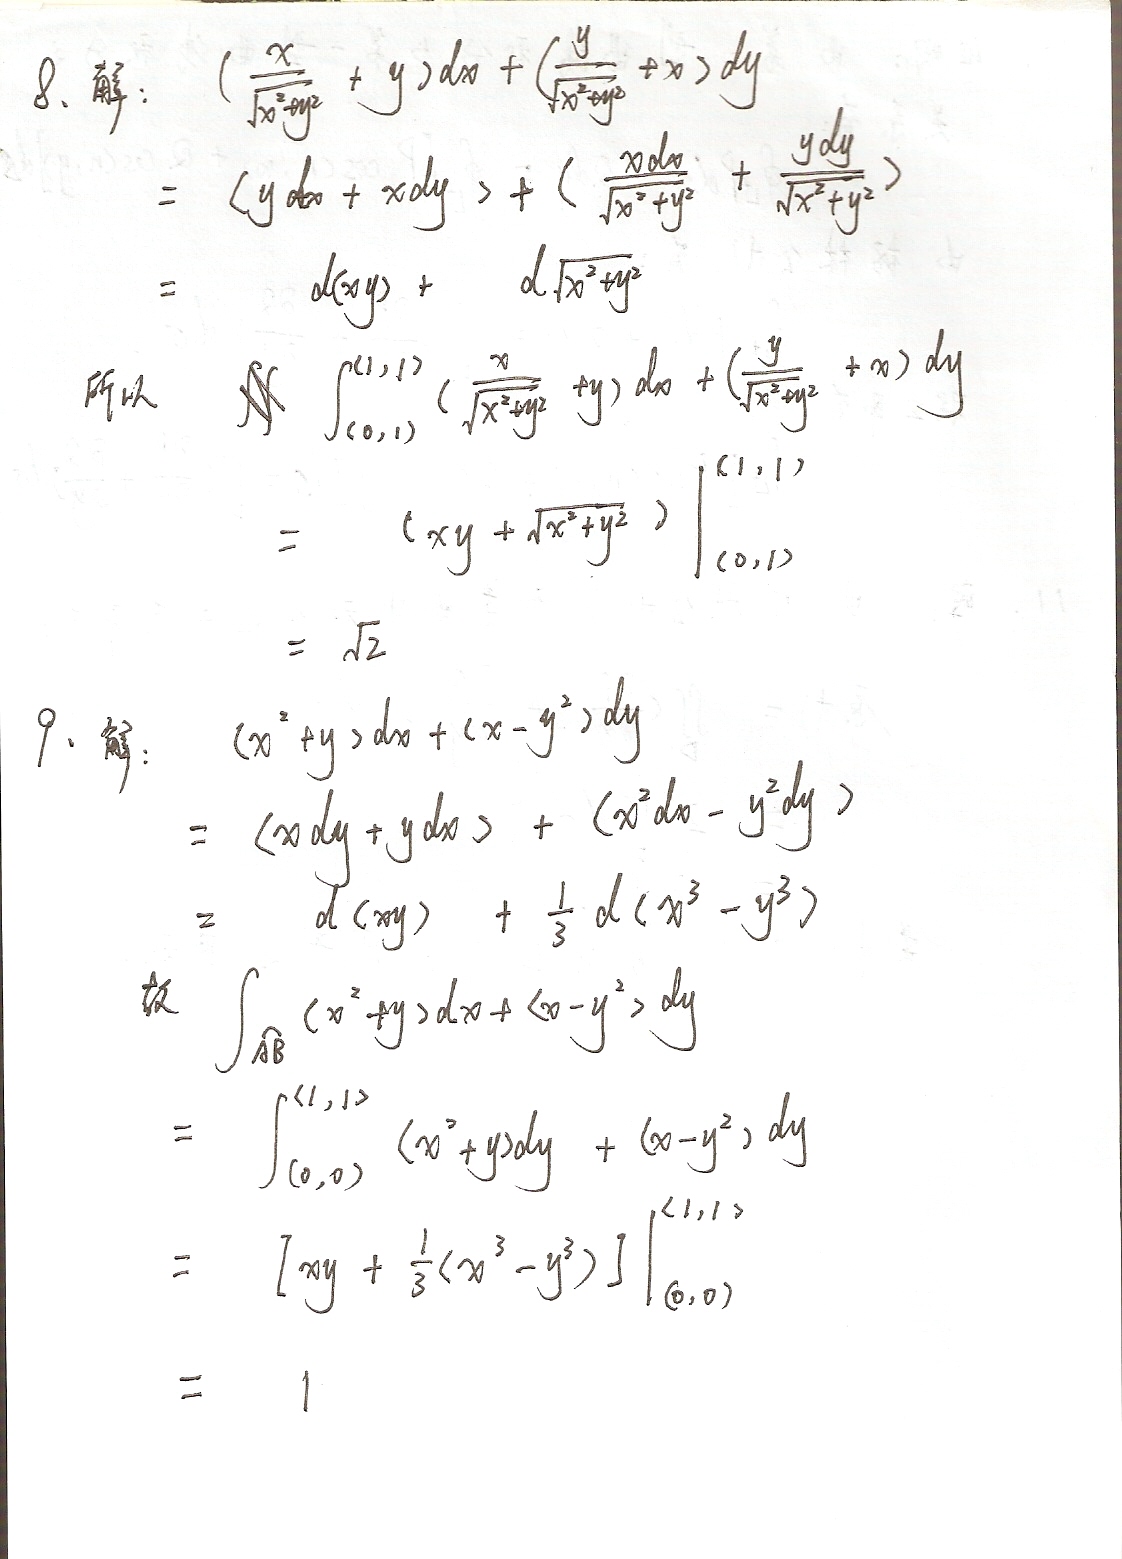 8. 解: (x/√(x²+y²) + y)dx + (y/√(x²+y²) + x)dy
= (ydx + xdy) + (xdx/√(x²+y²) + ydy/√(x²+y²))
= d(xy) + d√(x²+y²)
所以 ∫_(0,1)^(1,1) (x/√(x²+y²) + y)dx + (y/√(x²+y²) + x)dy
= (xy + √(x²+y²)) |_(0,1)^(1,1)
= √2
9. 解: (x²+y)dx + (x-y²)dy
= (xdy + ydx) + (x²dx - y²dy)
= d(xy) + 1/3 d(x³ - y³)
故 ∫_AB (x²+y)dx + (x-y²)dy
= ∫_(0,0)^(1,1) (x²+y)dy + (x-y²)dy
= [xy + 1/3(x³ - y³)] |_(0,0)^(1,1)
= 1